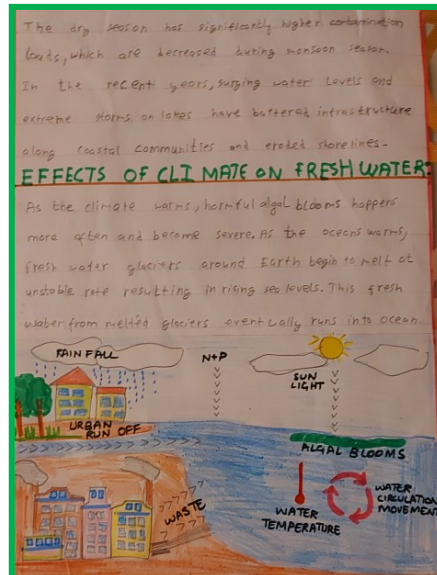 The dry season has significantly higher contamination
loads, which are decreased during monsoon season.
In the recent years, surging water levels and
extreme storms on lakes have battered infrastructure
along coastal communities and eroded shorelines.
EFFECTS OF CLIMATE ON FRESH WATER:
As the climate warms, harmful algal blooms happens
more often and become severe. As the oceans warms,
fresh water glaciers around Earth begin to melt at
unstable rate resulting in rising sea levels. This fresh
water from melted glaciers eventually runs into ocean.
RAIN FALL
N+P
SUN
LIGHT
URBAN
RUN OFF
ALGAL BLOOMS
WASTE
WATER
TEMPERATURE
WATER
CIRCULATION
MOVEMENT